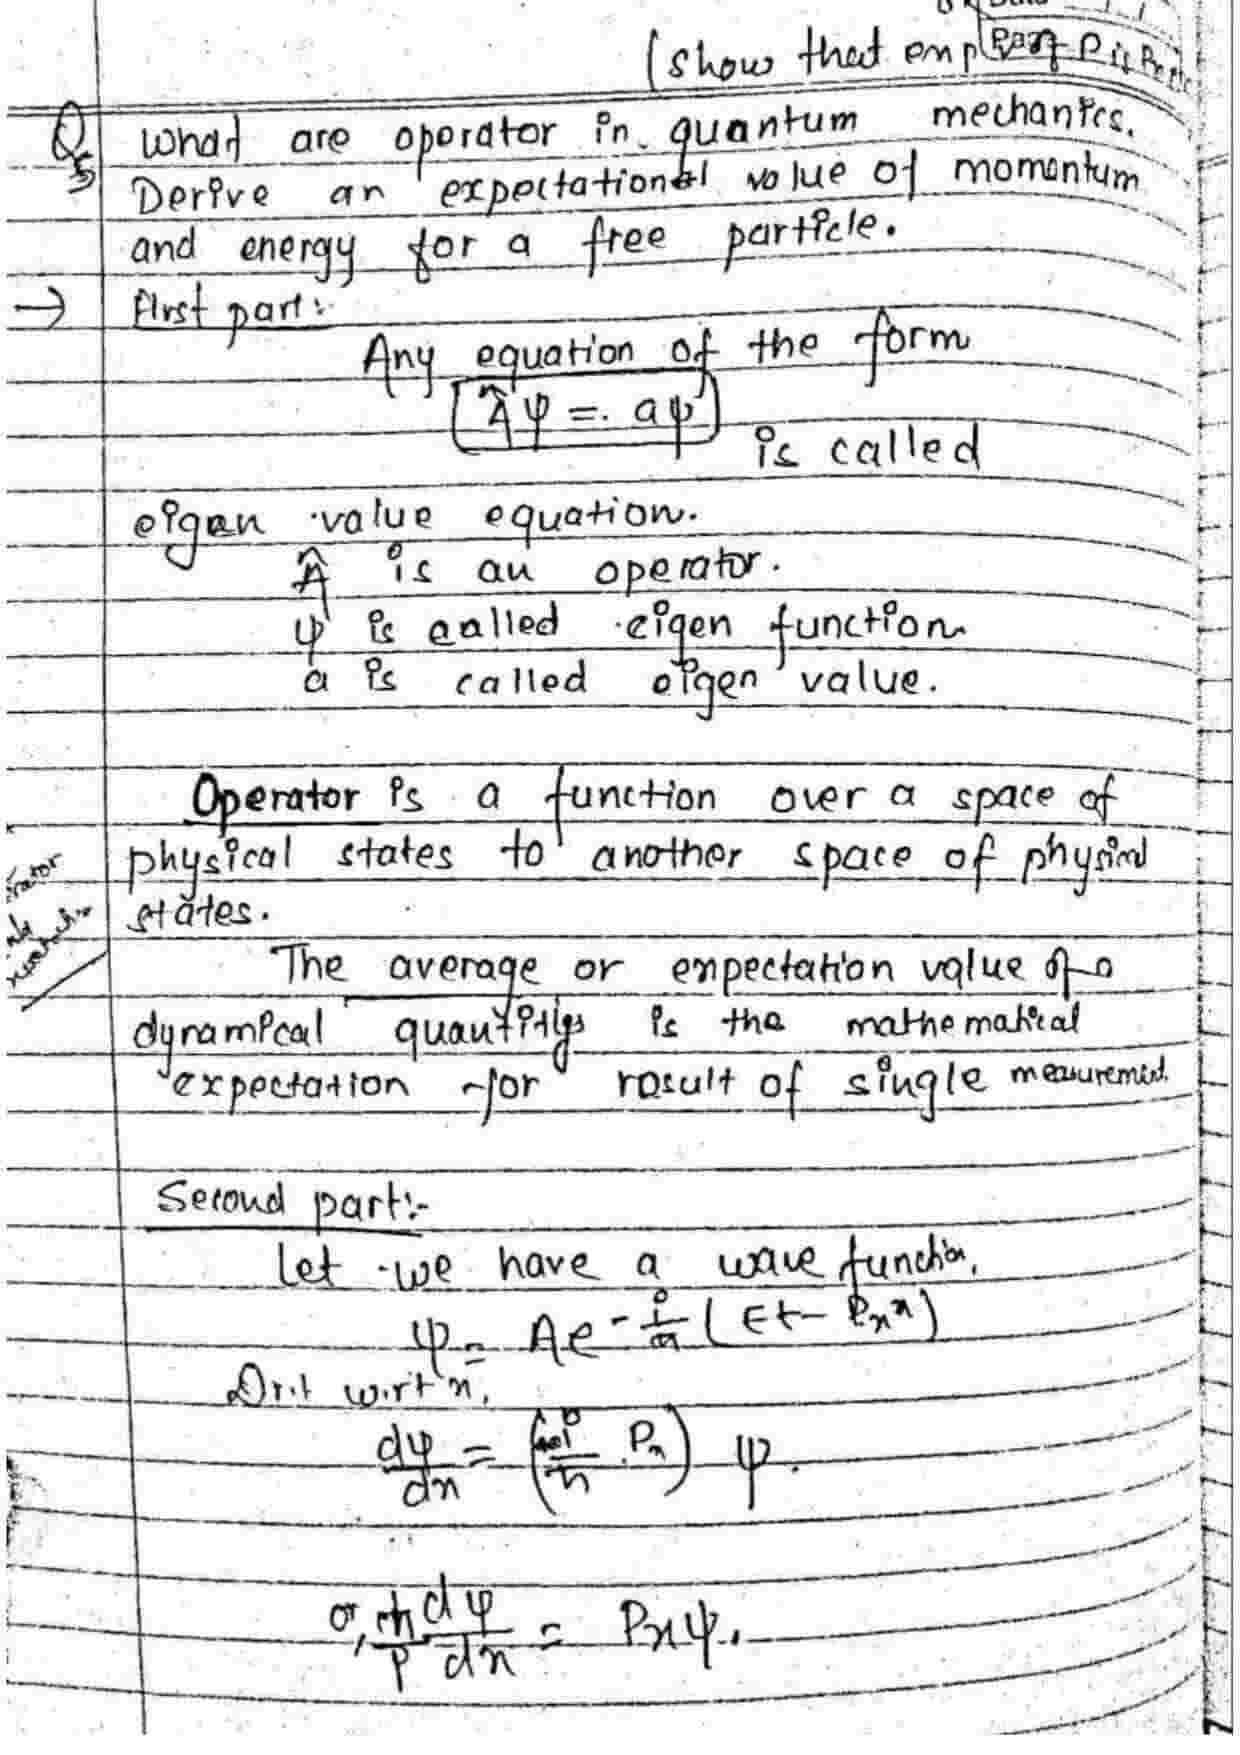 (show that exp
Q5 What are operator in quantum mechanics.
Derive an expectational value of momentum
and energy for a free particle.
→ First part:-
Any equation of the form
Âψ = aψ
is called
eigen value equation.
Â is an operator.
ψ is called eigen function
a is called eigen value.
Operator is a function over a space of
physical states to another space of physical
states.
The average or expectation value of a
dynamical quantities is the mathematical
expectation for result of single measurement.
Second part:-
Let we have a wave function,
ψ = Ae^{-i/ħ (Et - Pₓx)}
Diff w.r.t x,
dψ/dx = (i/ħ . Pₓ) ψ.
or, ħ/i dψ/dx = Pxψ.